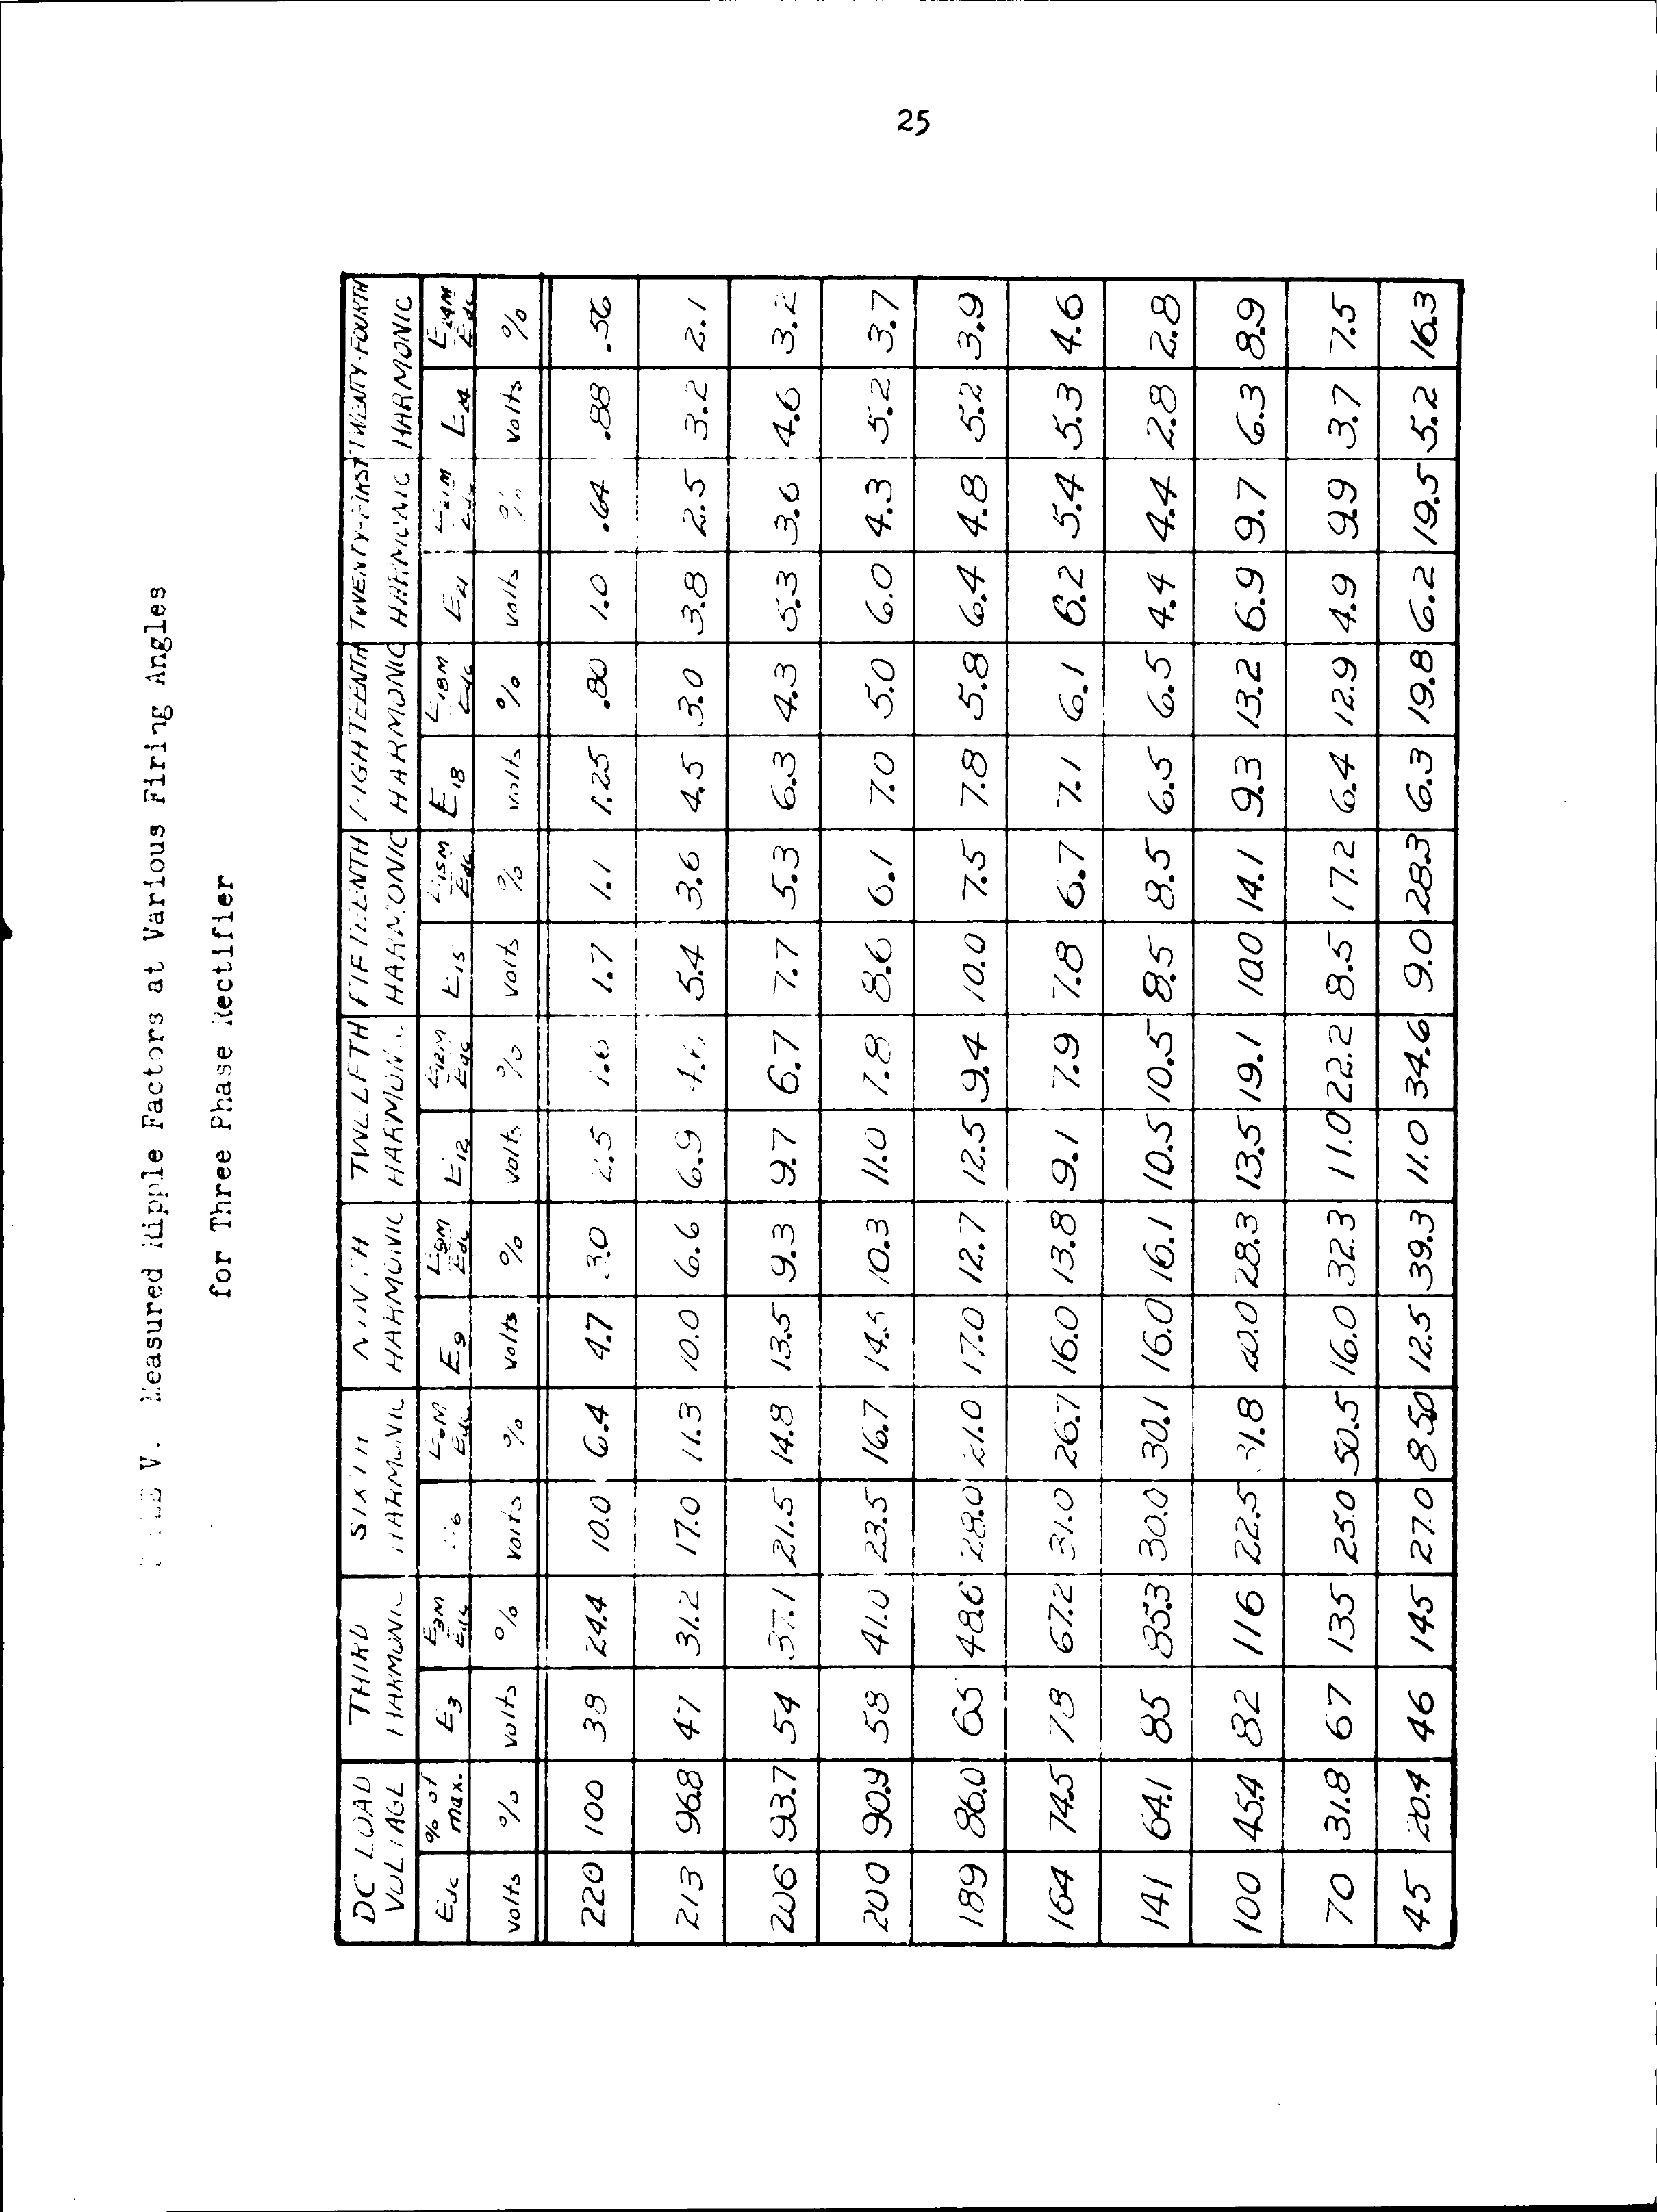 25
V. Measured Ripple Factors at Various Firing Angles
for Three Phase Rectifier
DC LOAD VOLTAGE THIRD HARMONIC SIXTH HARMONIC NINTH HARMONIC TWELFTH HARMONIC FIFTEENTH HARMONIC EIGHTEENTH HARMONIC TWENTY-FIRST HARMONIC TWENTY-FOURTH HARMONIC
Edc % of max. E3 E3M/Edc E6 E6M/Edc E9 E9M/Edc E12 E12M/Edc E15 E15M/Edc E18 E18M/Edc E21 E21M/Edc E24 E24M/Edc
volts % volts % volts % volts % volts % volts % volts % volts % volts %
220 100 38 24.4 10.0 6.4 4.7 3.0 2.5 1.6 1.7 1.1 1.25 .80 1.0 .64 .88 .56
213 96.8 47 31.2 17.0 11.3 10.0 6.6 6.9 5.4 3.6 4.5 3.0 3.8 2.5 3.2 2.1
206 93.7 54 37.1 21.5 14.8 13.5 9.3 9.7 6.7 7.7 5.3 6.3 4.3 5.3 3.6 4.6 3.2
200 90.9 58 41.0 23.5 16.7 14.5 10.3 11.0 7.8 8.6 6.1 7.0 5.0 6.0 4.3 5.2 3.7
189 86.0 65 48.6 28.0 21.0 17.0 12.7 12.5 9.4 10.0 7.5 7.8 5.8 6.4 4.8 5.2 3.9
164 74.5 78 67.2 31.0 26.7 16.0 13.8 9.1 7.9 7.8 6.7 7.1 6.1 6.2 5.4 5.3 4.6
141 64.1 85 85.3 30.0 30.1 16.0 16.1 10.5 10.5 8.5 8.5 6.5 6.5 4.4 4.4 2.8 2.8
100 45.4 82 116 22.5 31.8 20.0 28.3 13.5 19.1 10.0 14.1 9.3 13.2 6.9 9.7 6.3 8.9
70 31.8 67 135 25.0 50.5 16.0 32.3 11.0 22.2 8.5 17.2 6.4 12.9 4.9 9.9 3.7 7.5
45 20.4 46 145 27.0 8.50 12.5 39.3 11.0 34.6 9.0 28.3 6.3 19.8 6.2 19.5 5.2 16.3